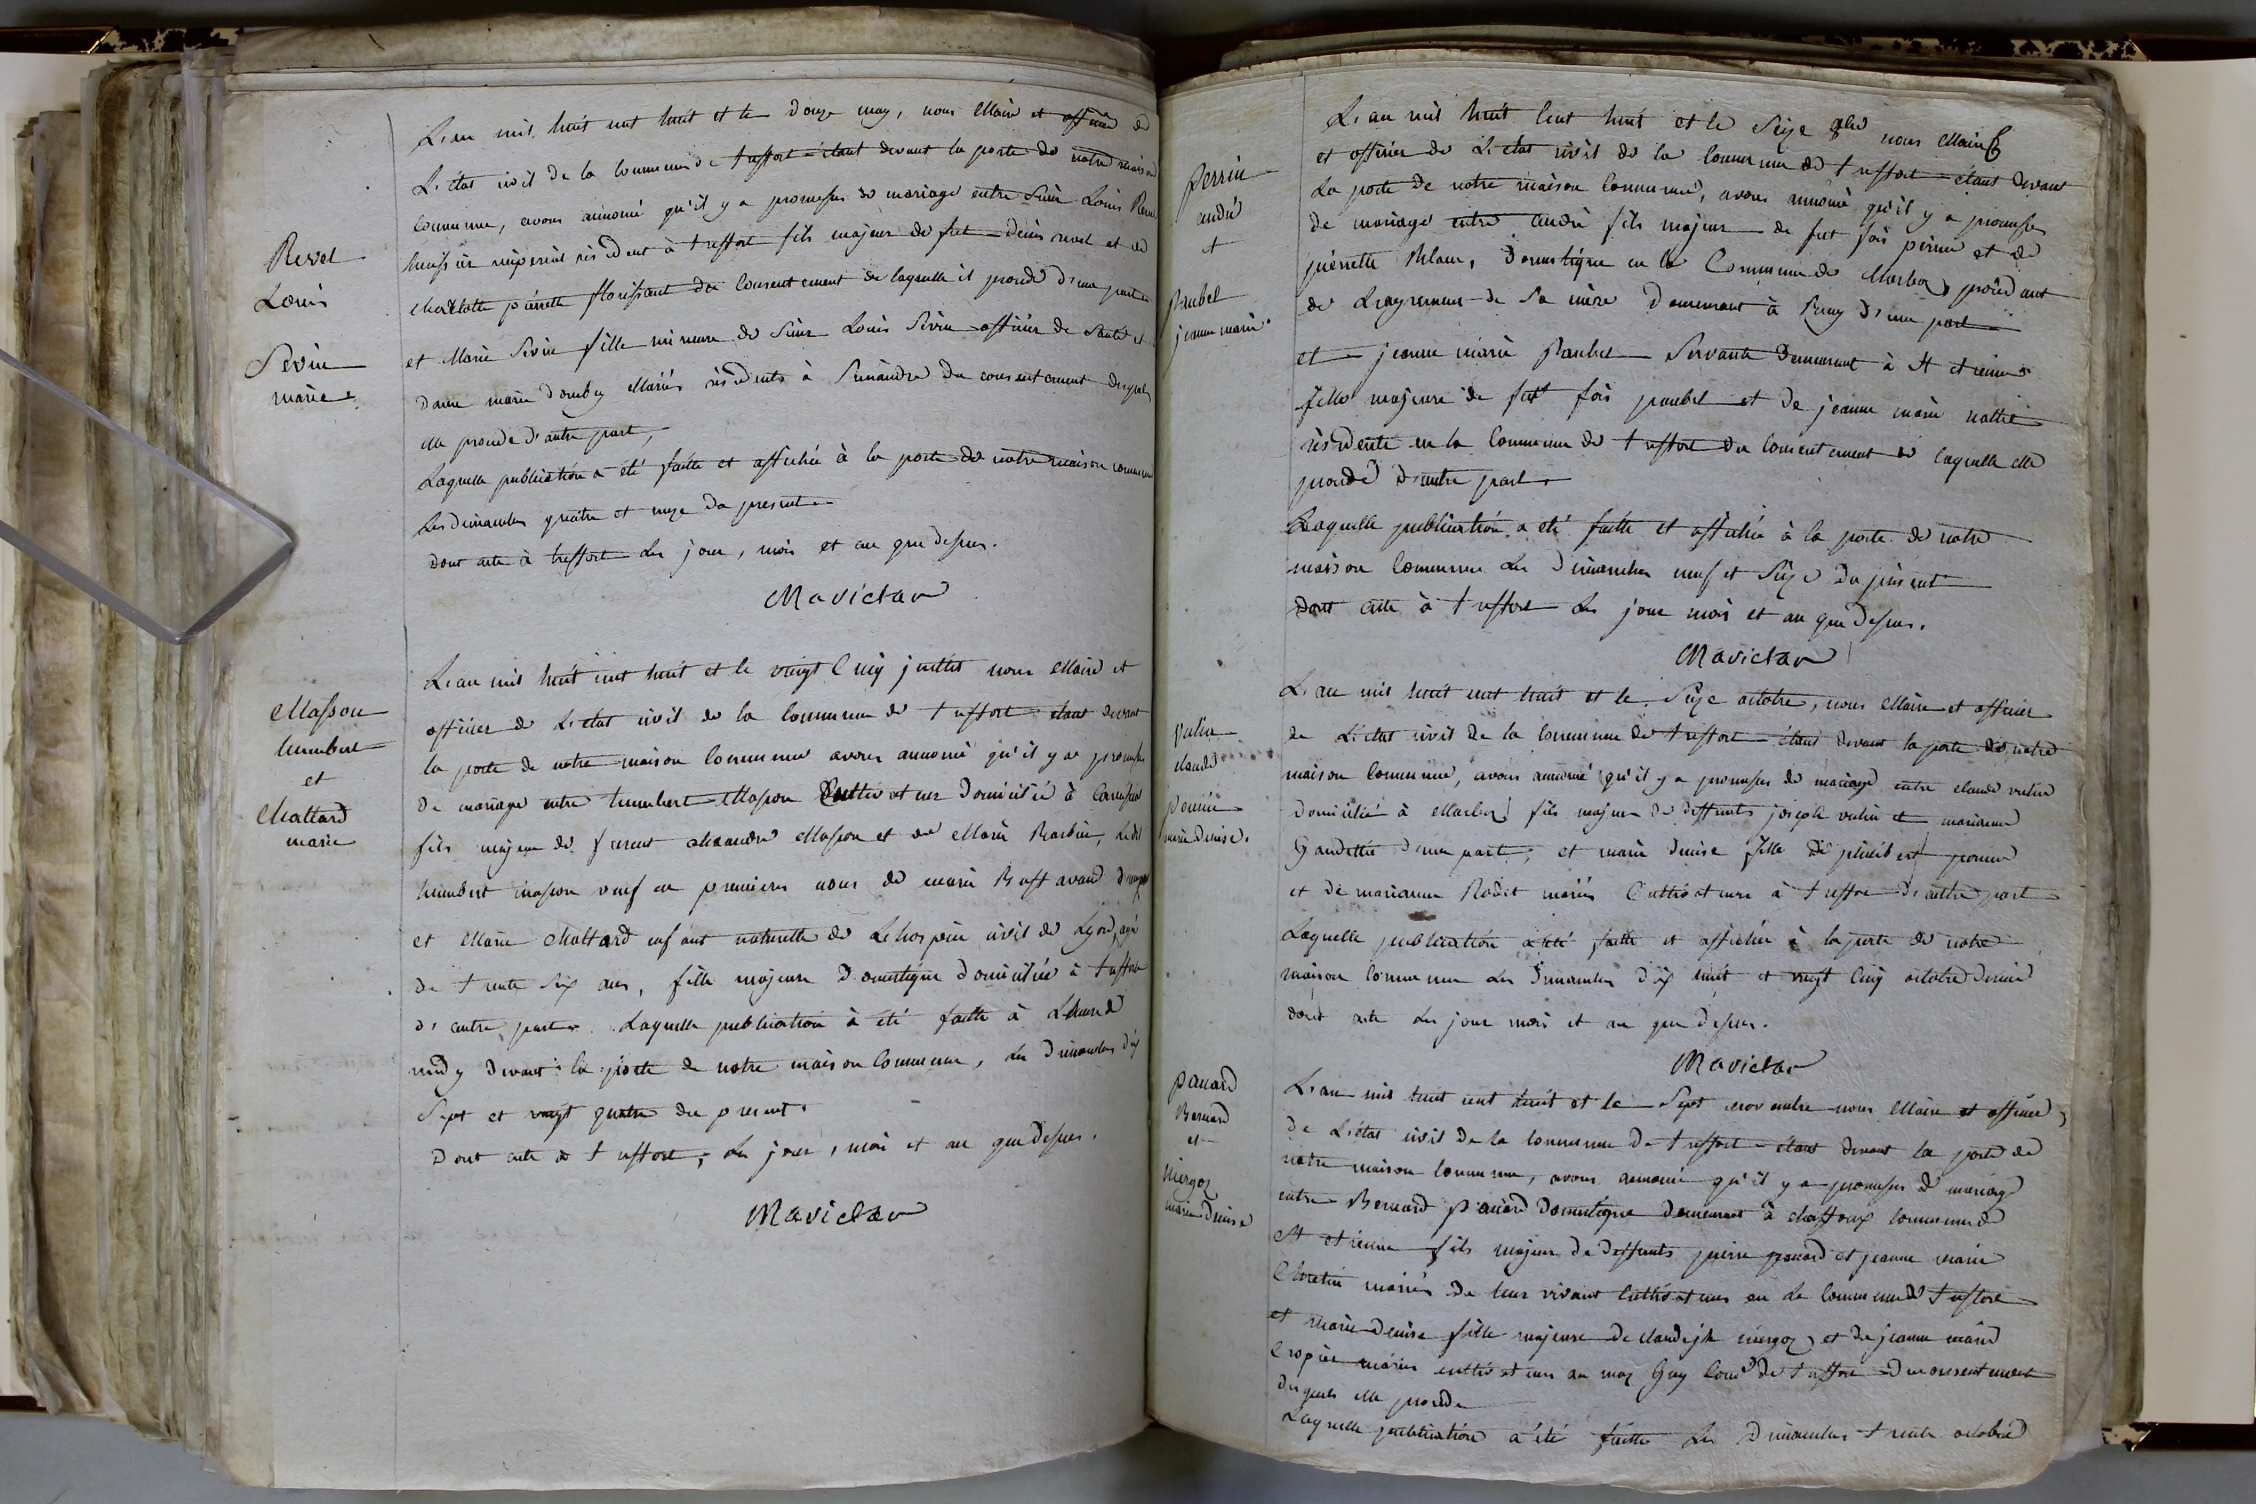 L'an mil huit cent huit et le douze may, nous Maire et officier de
L'état civil de la Commune de treffort étant devant la porte de notre maison
Commune, avons annoncé qu'il y a promesses de mariage entre Sieur Louis Revel
huissier impérial résident à treffort fils majeur de fut Denis revel et de
Charlotte pierrette florissant du Consentement de laquelle il procede d'une part
et Marie Sevin fille mineure de Sieur Louis Sevin officier de Santé et
dame marie dombey Mariés résidents à Simandre du consentement desquels
elle procede d'autre part,
Laquelle publication a été faitte et affichée à la porte de notre maison commune
Les dimanches du present
dont acte à treffort Les jour, mois et an que dessus.
Maviclar
Revel
Louis
Sevin
marie
L'an mil huit cent huit et le vingt Cinq juillet nous Maire et
officier de L'etat civil de la Commune de treffort étant devant
la porte de notre maison Commune avons annoncé qu'il y a promesses
de mariage entre humbert Masson Cultivateur domicilié à
fils majeur de furent alexandre Masson et de Marie Barbier, Ledit
humbert masson veuf en premieres noces de marie Buffavand d'une part
et Marie Mattard enfant naturelle de Lehospice civil de Lyon, agée
de trente Six ans, fille majeure domestique domiciliée à treffort
d'autre part. Laquelle publication à été faitte à L'heure de
midy devant la porte de notre maison Commune, Les dimanches dix
Sept et vingt quatre du present.
Dont acte à treffort, Les jour, mois et an que dessus.
Maviclar
Masson
humbert
et
Mattard
marie
L'an mil huit Cent huit et le Seize 8bre nous Maire
et officier de L'etat civil de la Commune de treffort étant devant
La porte de notre maison Commune, avons annoncé qu'il y a promesses
de mariage entre andré fils majeur de fut fois perrin et de
pierrette Blanc, domestique en la Commune de Marboz procedant
de L'agrement de Sa mere demeurant à d'une part
et jeanne marie Paubel Servante demeurant à St etienne
fille majeure de fut fois paubel et de jeanne marie
résidente en la Commune de treffort du Consentement de laquelle elle
procede d'autre part.
Laquelle publication a été faitte et affichée à la porte de notre
maison Commune Les dimanches neuf et Seize du present
dont acte à treffort Les jour mois et an que dessus.
Maviclar
Perrin
andré
et
Paubel
jeanne marie
L'an mil huit cent huit et le Seize octobre, nous Maire et officier
de L'etat civil de la Commune de treffort étant devant la porte de notre
maison Commune, avons annoncé qu'il y a promesses de mariage entre claude vulin
domicilié à Marboz fils majeur de deffunts joseph vulin et marianne
d'une part, et marie denise fille de philibert
et de marianne Rodet mariés Cultivateurs à treffort d'autre part
Laquelle publication a été faitte et affichée à la porte de notre
maison Commune Les dimanches dix huit et vingt Cinq octobre dernier
dont acte Les jour mois et an que dessus.
Maviclar
vulin
claude
marie denise.
L'an mil huit cent huit et le Sept novembre nous Maire et officier
de L'état civil de la Commune de treffort étant devant la porte de
notre maison Commune, avons annoncé qu'il y a promesses de mariage
entre Bernard panard domestique demeurant à chaffoux Commune de
St etienne fils majeur de deffunts pierre panard et jeanne marie
Chretin mariés de leur vivant Cultivateurs en la Commune de treffort
et marie denise fille majeure de claude jh niergoz et de jeanne marie
mariés cultivateurs au maz Guy Comne de treffort du consentement
desquels elle procede
Laquelle publication a été faitte Les dimanches trente octobre
panard
Bernard
et
Niergoz
marie Denise